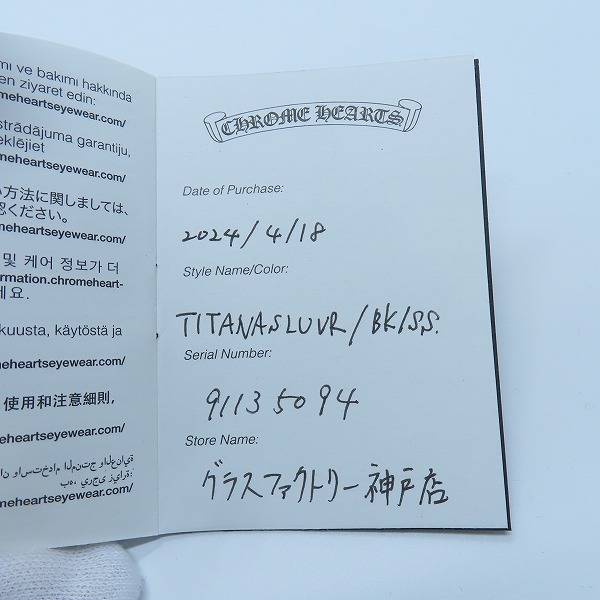 mı ve bakımı hakkında
en ziyaret edin:
omeheartseyewear.com/
strādājuma garantiju,
eklējiet
meheartseyewear.com/
い方法に関しましては、
認ください。
meheartseyewear.com/
및 케어 정보가 더
rmation.chromeheart-
세요.
kuusta, käytöstä ja
omeheartseyewear.com/
使用和注意細則,
omeheartseyewear.com/
ان واستخدام المنتج والعناية
به، يرجى زيارة:
omeheartseyewear.com/
CHROME HEARTS
Date of Purchase:
2024/4/18
Style Name/Color:
TITANASLUVR/BK/S.S.
Serial Number:
91135094
Store Name:
グラスファクトリー神戸店